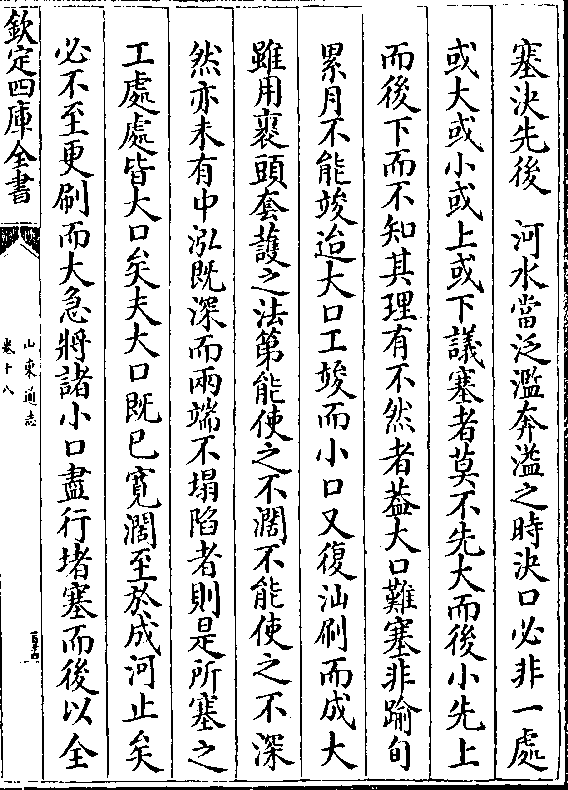 塞決先後　河水當泛濫奔溢之時決口必非一處
或大或小或上或下議塞者莫不先大而後小先上
而後下而不知其理有不然者葢大口難塞非踰旬
累月不能竣迨大口工竣而小口又復汕刷而成大
雖用裹頭套護之法第能使之不濶不能使之不深
然亦未有中泓既深而兩端不塌陷者則是所塞之
工處處皆大口矣夫大口既已寛濶至於成河止矣
必不至更刷而大急將諸小口盡行堵塞而後以全
欽定四庫全書
山東通志
卷十八